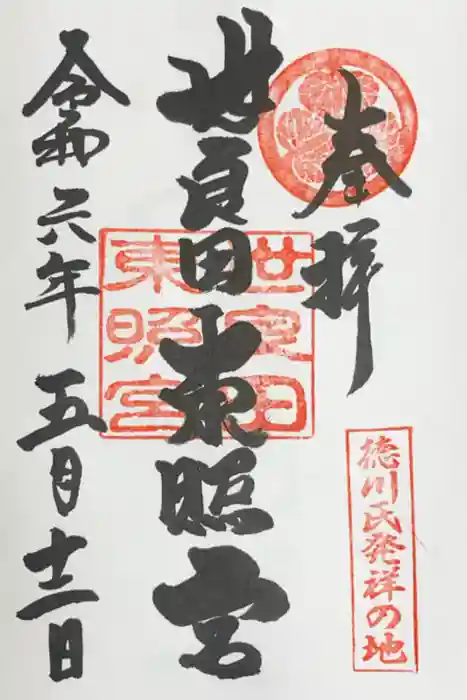 奉拝
徳川氏発祥の地
世良田東照宮
世良田
東照宮
令和六年五月十二日